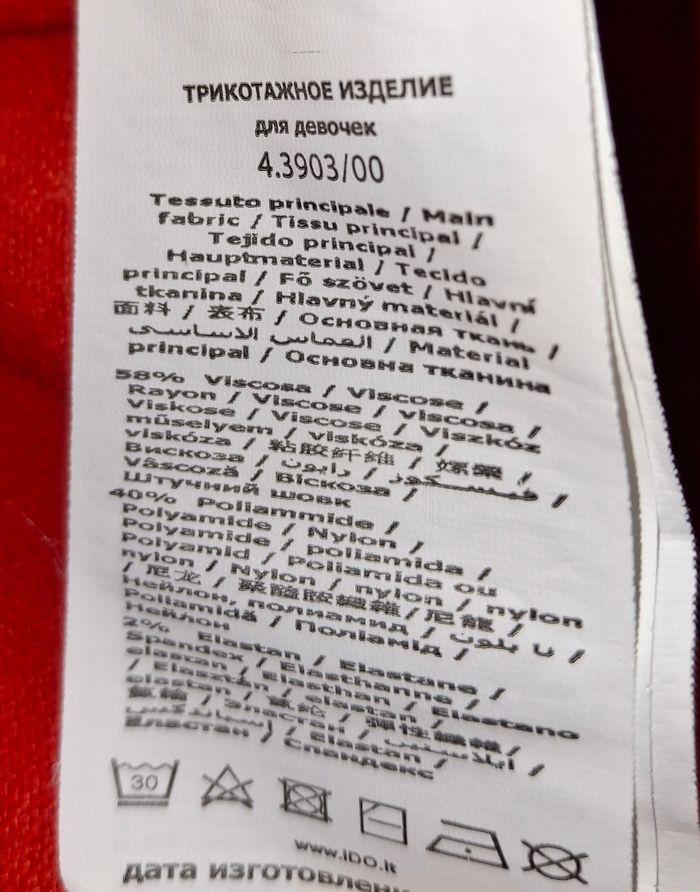 ТРИКОТАЖНОЕ ИЗДЕЛИЕ
для девочек
4.3903/00
Tessuto principale / Main
fabric / Tissu principal /
Tejido principal /
Hauptmaterial / Tecido
principal / Fő szövet / Hlavní
tkanina / Hlavný materiál /
面料 / 表布 / Основная ткань /
القماس الاساسى / Material
principal / Основна тканина
58% Viscosa / Viscose /
Rayon / Viscose / viscosa /
Viskose / Viscose / Viszkóz
műselyem / viskóza /
viskóza / 粘胶纤维 / 嫘縈 /
Вискоза / رايون / فيسكوز /
Vâscoză / Віскоза /
Штучний шовк
40% Poliammide /
Polyamide / Nylon /
Polyamide / poliamida /
Polyamid / Poliamida ou
nylon / Nylon / nylon / nylon
/ 尼龙 / 聚醯胺纖維/尼龍 /
Нейлон, полиамид / نا يلون /
Poliamidă / Поліамід /
Нейлон
2% Elastan / Elastane /
Spandex / Elasthanne /
elastan / Elasthan / Elastano
/ Elasztán / elastan /
elastan / 氨纶 / 彈性纖維/
Эластан /
Elastan /
Еластан / Спандекс
30
www.iDO.it
дата изготовлени